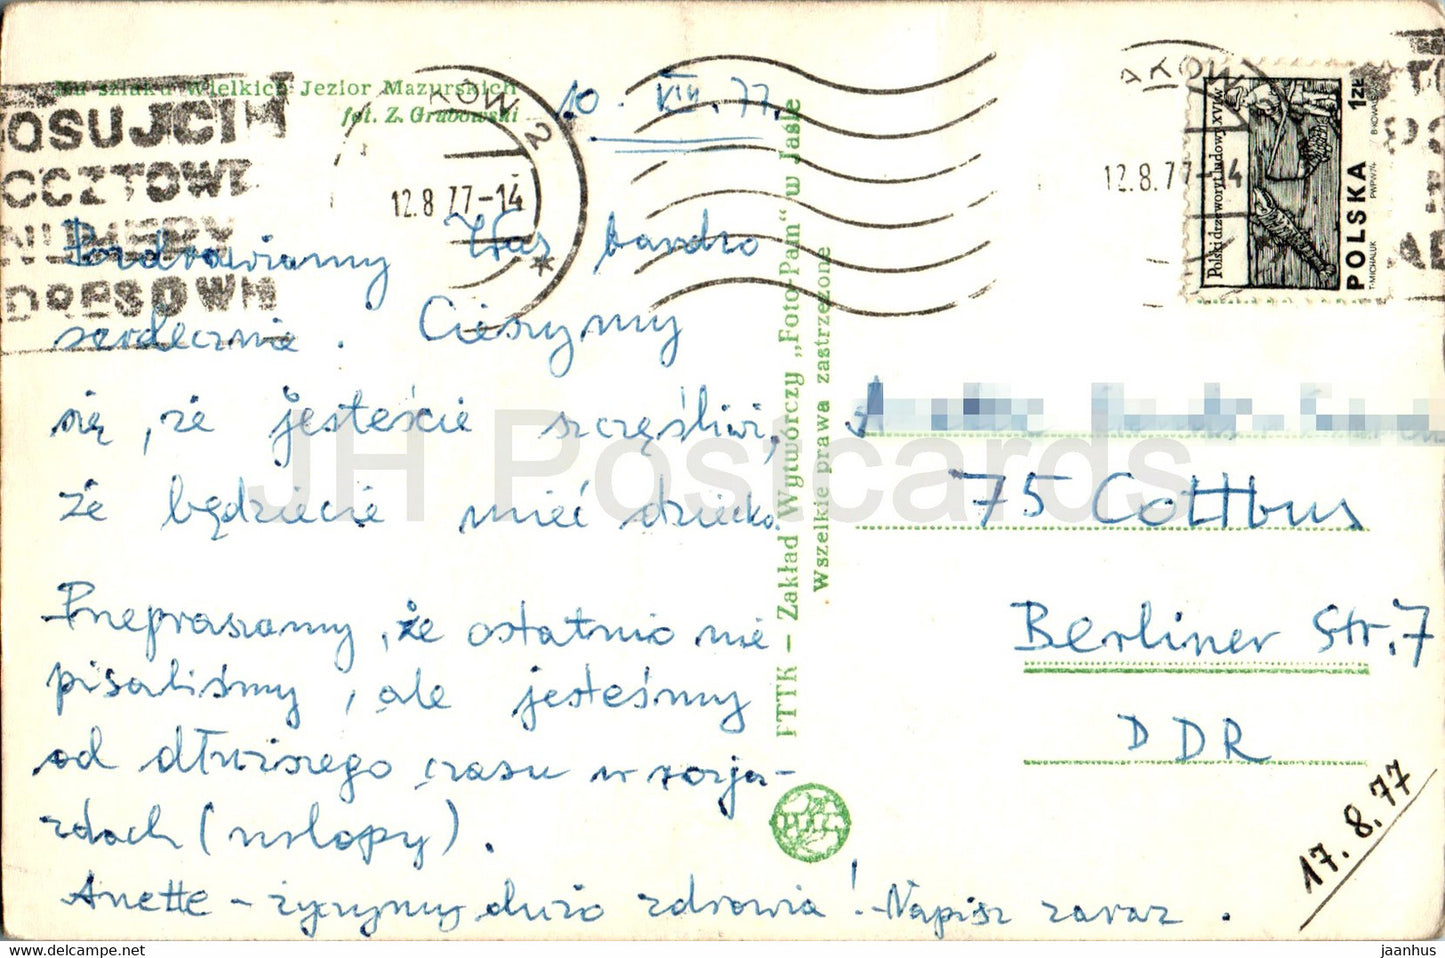 Na szlaku Wielkich Jezior Mazurskich
fot. Z. Grabowski
10. VIII. 77.
KRAKÓW 2
12.8.77-14
*
OSUJCIE
OCZTOWE
NUMERY
DRESOWE
AKÓW
12.8.77-14
Polski drzeworyt ludowy XVI w.
1 ZŁ
POLSKA
T. MICHALUK
PWPW
Pozdrawiamy Was bardzo
serdecznie. Cieszymy
się, że jesteście szczęśliwi,
że będziecie mieć dziecko.
Przepraszamy, że ostatnio nie
pisaliśmy, ale jesteśmy
od dłuższego czasu w rozja-
zdach (urlopy).
Anette - życzymy dużo zdrowia! Napisz zaraz.
FTTK - Zakład Wytwórczy „Foto-Pam" w Jaśle
Wszelkie prawa zastrzeżone
75 Cottbus
Berliner Str. 7
DDR
17.8.77
JH Postcards
www.delcampe.net
jaanhus